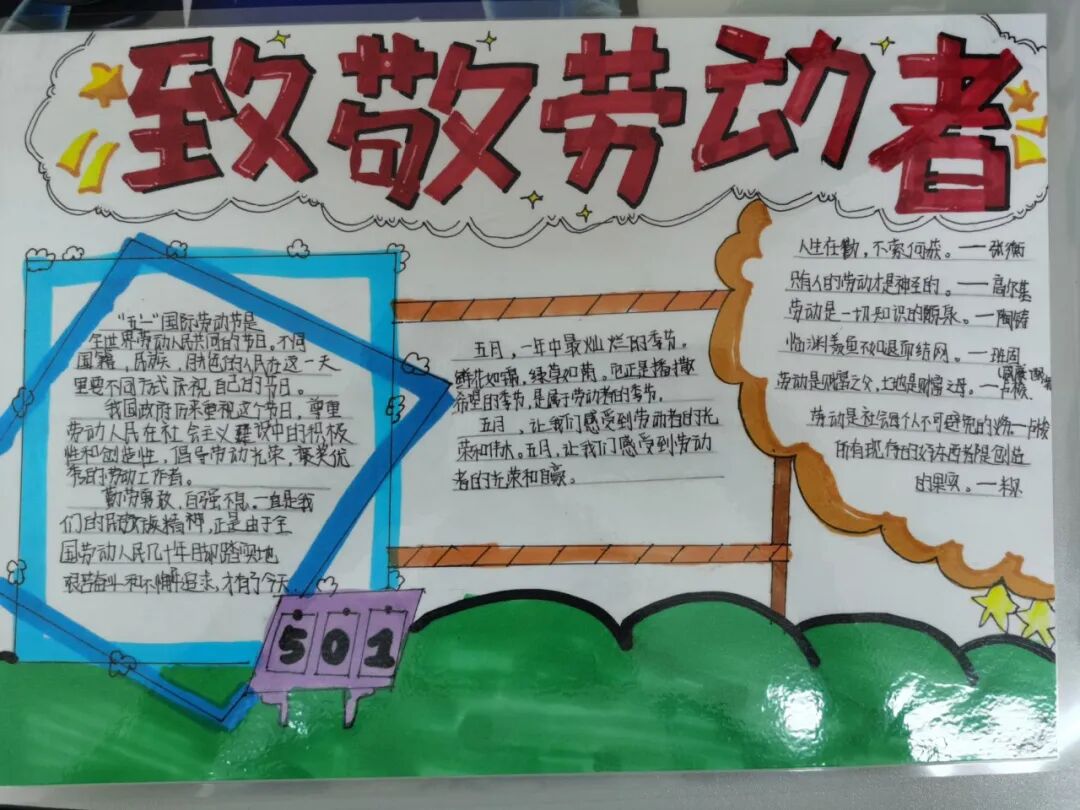 致敬劳动者
"五一"国际劳动节是
全世界劳动人民共同的节日。不同
国籍，民族，肤色的人民在这一天
里要不同方式庆祝自己的节日。
我国政府历来重视这个节日，尊重
劳动人民在社会主义建设中的积极
性和创造性，倡导劳动光荣，褒奖优
秀的劳动工作者。
勤劳勇敢，自强不息，一直是我
们的民族精神，正是由于全
国劳动人民几十年脚踏实地
艰苦奋斗和不懈追求，才有了今天
501
五月，一年中最灿烂的季节。
鲜花如霞，绿草如茵，它正是播撒
希望的季节，是属于劳动者的季节。
五月，让我们感受到劳动者的光
荣和伟大。五月，让我们感受到劳动
者的光荣和自豪。
人生在勤，不索何获。——张衡
只有人的劳动才是神圣的。——高尔基
劳动是一切知识的源泉。——陶铸
临渊羡鱼不如退而结网。——班固
劳动是财富之父，土地是财富之母。——
劳动是社会每个人不可避免的
所有现存的好东西都是创造
的果实。——米尔